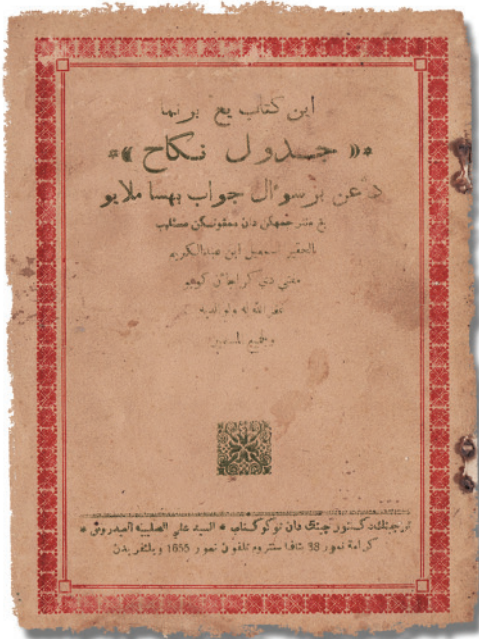 اين كتاب يڠ برنما
*« جدول نكاح »*
دڠن برسوٴال جواب بهسا ملايو
يڠ منترجمهكن دان
الحقير اسمعيل ابن عبدالكريم
مفتي دي كراجاٴن
غفر الله له ولوالديه
ولجميع المسلمين
ترچيتق دكنتور چيتق دان توكو كتاب * السيد علي العيدروس *
كرامة نمور 38 تلفون نمور 1655 ويلتفريدن